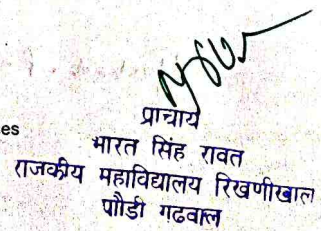 प्राचार्य
es
भारत सिंह रावत
राजकीय महाविद्यालय रिखणीखाल
पौडी गढवाल